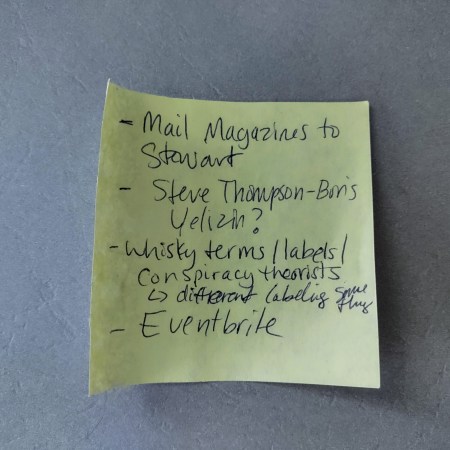 - Mail Magazines to
Stewart
- Steve Thompson-Boris
Yelizin?
- Whisky terms / labels /
Conspiracy theorists
↳ different labeling same
thing
- Eventbrite